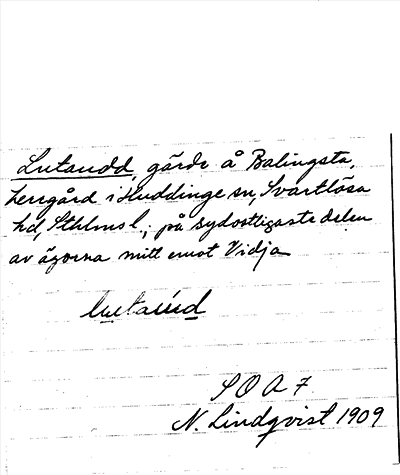 Lutaudd, gärde å Balingsta,
herrgård i Huddinge sn, Svartlösa
hd, Sthlms l.; på sydostligaste delen
av ägorna mitt emot Vidja
lutaúd
S O A 7
N. Lindqvist 1909